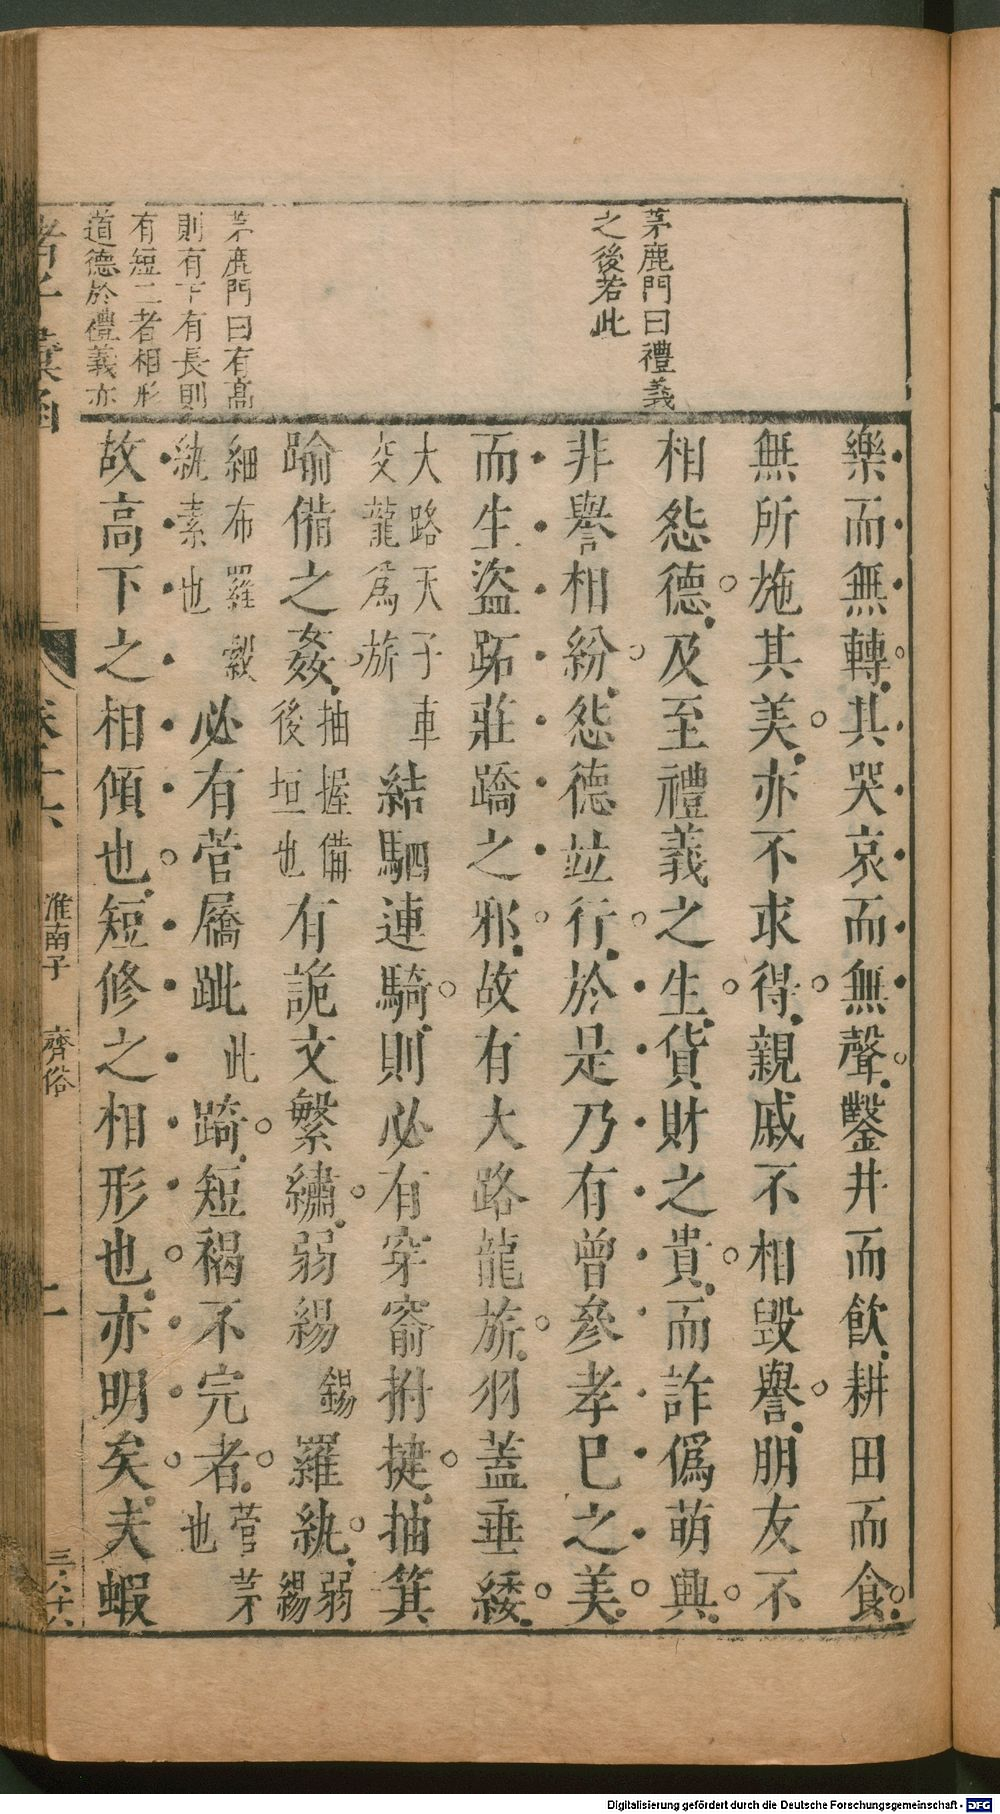 茅鹿門曰禮義
之後若此
茅鹿門曰有高
則有下有長則
有短二者相形
道德於禮義亦
樂而無轉其哭哀而無聲鑿井而飲耕田而食
無所施其美亦不求得親戚不相毀譽朋友不
相怨德及至禮義之生貨財之貴而詐偽萌興
非譽相紛怨德竝行於是乃有曾參孝己之美
而生盜跖莊蹻之邪故有大路龍旂羽蓋垂緌
大路天子車
交龍爲旂
結駟連騎則必有穿窬拊揵抽箕
踰備之姦
抽握備
後垣也
有詭文繁繡弱緆
錫
羅紈
弱緆
細布羅縠
紈素也
必有菅屩跐
此
踦短褐不完者
菅茅
也
故高下之相傾也短修之相形也亦明矣夫蝦
諸子彙函
卷十六
淮南子
齊俗
二
三八十六
Digitalisierung gefördert durch die Deutsche Forschungsgemeinschaft - DFG